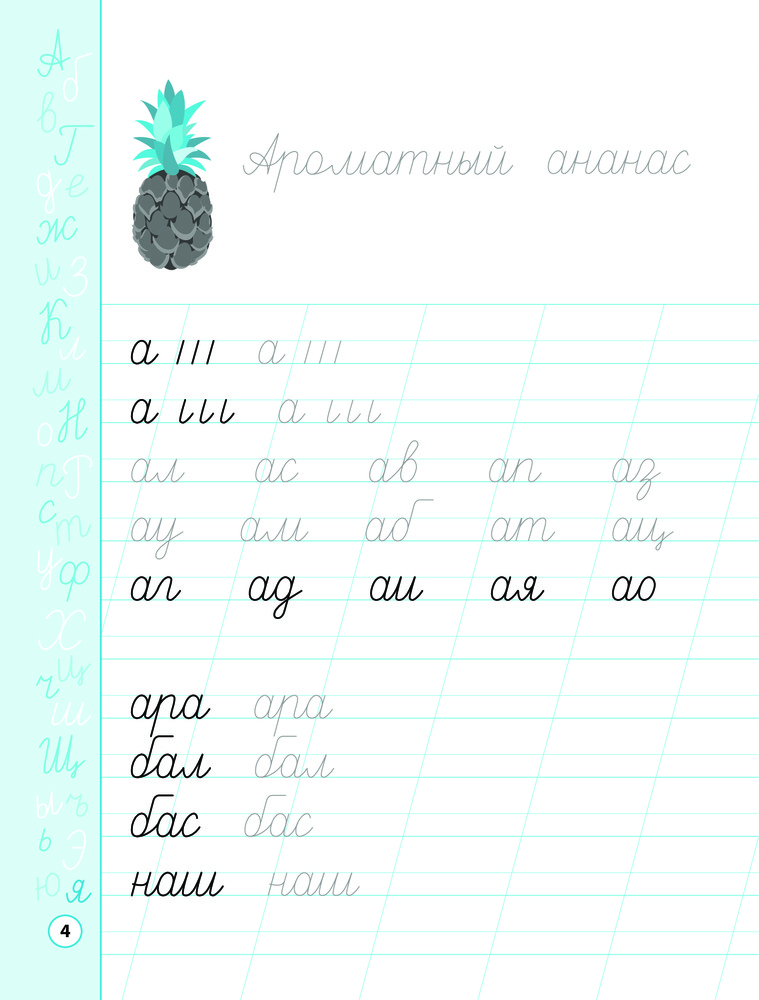 Ароматный ананас
а ııı а ııı
а ııı а ııı
ал ас ав ап аз
ау ам аб ат ац
аг ад аи ая ао
ара ара
бал бал
бас бас
наш наш
А
б
в
Г
д е
ж
и З
К
л
м
о Н
п Г
с
т
у ф
Х
ч ц
ш
Щ
ы ъ
ь
Э
Ю я
4